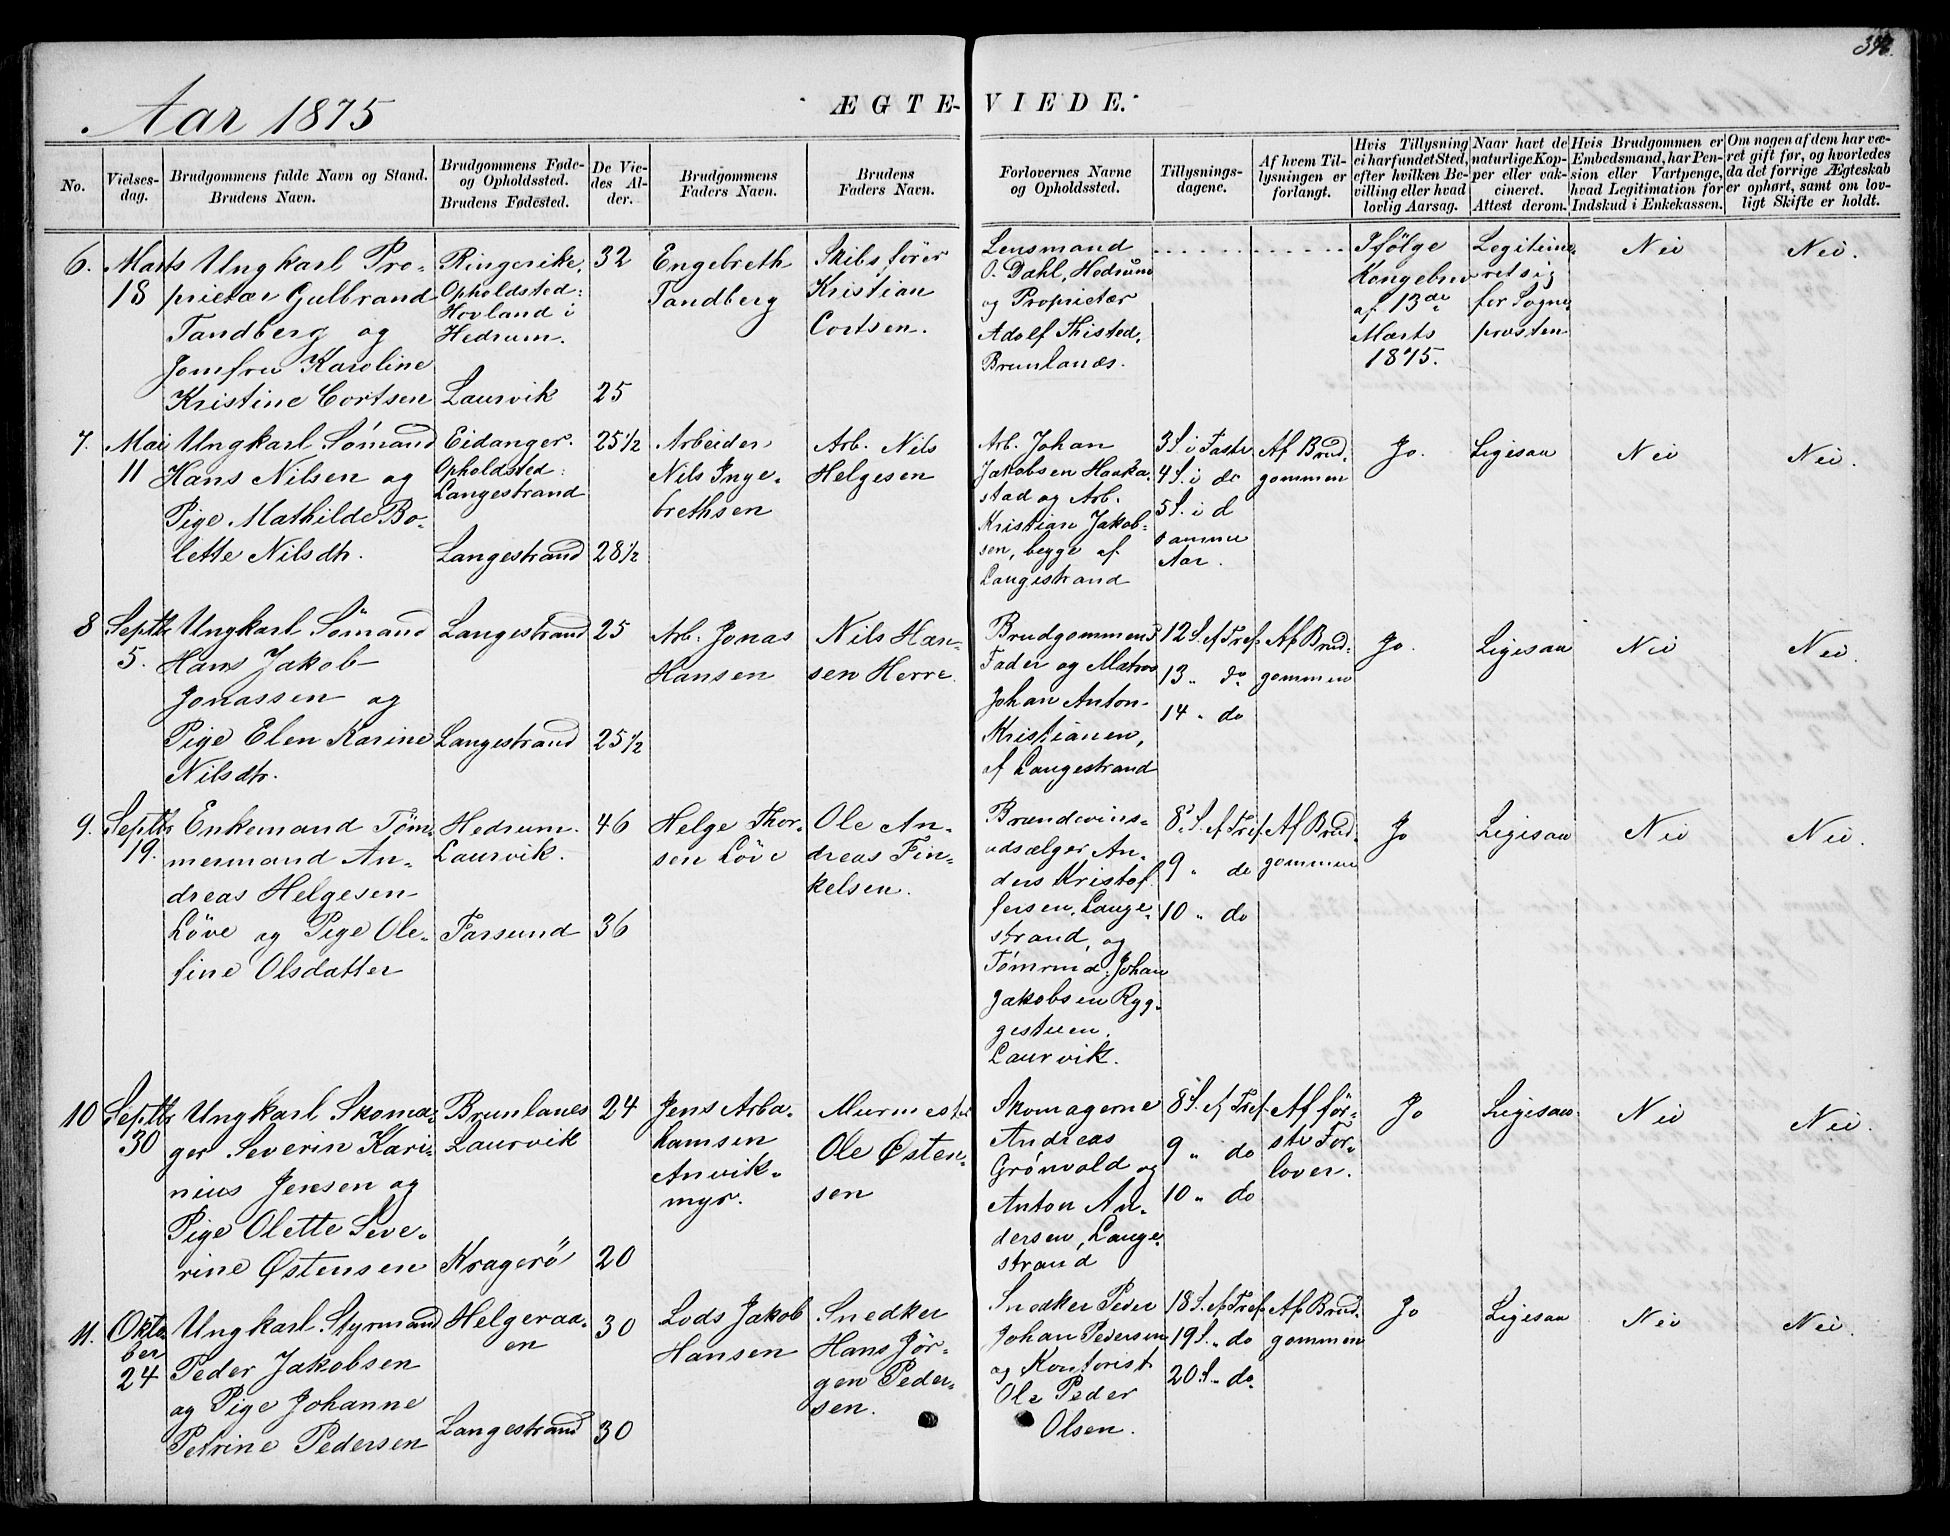 342.
Aar 1875
ÆGTE-VIEDE.
No.
Vielses-
dag.
Brudgommens fulde Navn og Stand.
Brudens Navn.
Brudgommens Føde-
og Opholdssted.
Brudens Fødested.
De Vie-
des Al-
der.
Brudgommens
Faders Navn.
Brudens
Faders Navn.
Forlovernes Navne
og Opholdssted.
Tillysnings-
dagene.
Af hvem Til-
lysningen er
forlangt.
Hvis Tillysning
ei har fundet Sted,
efter hvilken Be-
villing eller hvad
lovlig Aarsag.
Naar havt de
naturlige Kop-
per eller vak-
cineret.
Attest derom.
Hvis Brudgommen er
Embedsmand, har Pen-
sion eller Vartpenge,
hvad Legitimation for
Indskud i Enkekassen.
Om nogen af dem har væ-
ret gift før, og hvorledes
da det forrige Ægteskab
er ophørt, samt om lov-
ligt Skifte er holdt.
6.
Marts
18
Ungkarl Pro-
prietær Gulbrand
Tandberg og
Jomfru Karoline
Kristine Cortsen
Ringerike.
Opholdsted:
Hovland i
Hedrum.
Laurvik
32
25
Engebreth
Tandberg
Skibsfører
Kristian
Cortsen.
Lensmand
O. Dahl, Hedrum
og Proprietær
Adolf Thisted,
Brunlanæs.
Ifølge
Kongebrev
af 13de
Marts
1875.
Legitime-
ret sig
for Sogne-
præsten
Nei
Nei.
7.
Mai
11
Ungkarl Sømand
Hans Nilsen og
Pige Mathilde Bo-
lette Nilsdtr.
Eidanger.
Opholdsted:
Langestrand
Langestrand
25 1/2
28 1/2
Arbeider
Nils Inge-
brethsen
Arb. Nils
Helgesen
Arb. Johan
Jakobsen Haaka-
stad og Arb.
Kristian Jakob-
sen, begge af
Langestrand
3 S. i Faste
4 S. i do
5 S. i d
samme
Aar.
Af Brud-
gommen
Jo.
Ligesaa
Nei
Nei.
8
Septbr
5.
Ungkarl Sømand
Hans Jakob
Jonassen og
Pige Elen Karine
Nilsdtr.
Langestrand
Langestrand
25
25 1/2
Arb. Jonas
Hansen
Nils Han-
sen Herre.
Brudgommens
Fader og Matros
Johan Anton
Kristiansen,
af Langestrand
12 S. ef Tref.
13 " do
14 " do
Af Brud-
gommen
Jo.
Ligesaa
Nei
Nei.
9.
Septbr
19.
Enkemand Tøm-
mermand An-
dreas Helgesen
Løve og Pige Ole-
fine Olsdatter
Hedrum.
Laurvik.
Farsund
46
36
Helge Thor-
sen Løve
Ole An-
dreas Fin-
kelsen.
Brændevins-
udsælger An-
ders Kristof-
fersen, Lange-
strand, og
Tømrmd. Johan
Jakobsen Ryg-
gestuen,
Laurvik.
8 S. ef Tref.
9 " do
10 " do
Af Brud-
gommen
Jo
Ligesaa
Nei
Nei.
10
Septbr
30
Ungkarl Skoma-
ger Severin Kari-
nius Jensen og
Pige Olette Seve-
rine Østensen
Brunlanes
Laurvik
Kragerø
24
20
Jens Abra-
hamsen
Anvik-
myr.
Murmester
Ole Østen-
sen
Skomagerne
Andreas
Grønvold og
Anton An-
dersen, Lange-
strand
8 S. ef Tref.
9 " do
10 " do
Af før-
ste For-
lover.
Jo
Ligesaa
Nei
Nei.
11.
Okto-
ber
24
Ungkarl Styrmand
Peder Jakobsen
og Pige Johanne
Petrine Pedersen
Helgeraa-
en
Langestrand
30
30
Lods Jakob
Hansen
Snedker
Hans Jør-
gen Peder-
sen.
Snedker Peder
Johan Pedersen
og Kontorist
Ole Peder
Olsen.
18 S. ef Tref.
19 S. " do
20 S. " do
Af Brud-
gommen
Jo
Ligesaa
Nei
Nei.